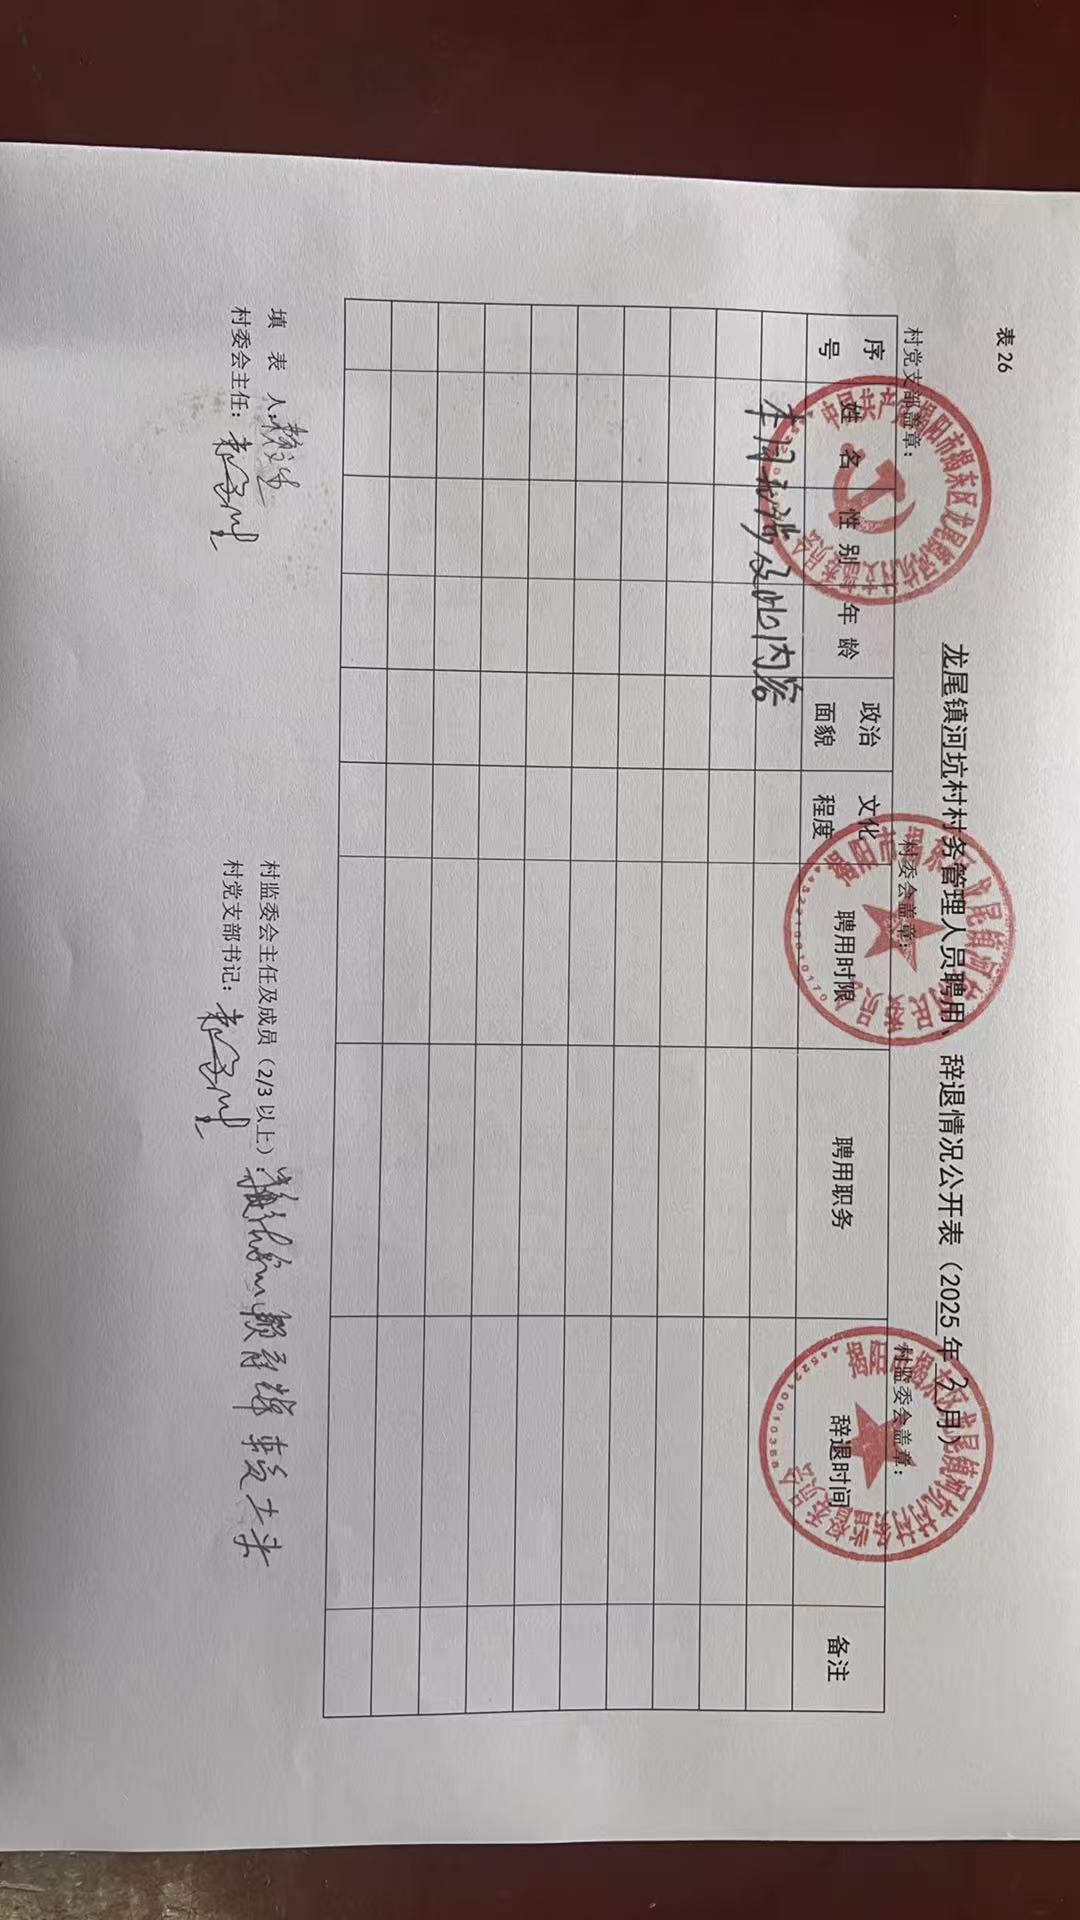 表 26
龙尾镇河坑村村务管理人员聘用、辞退情况公开表（2025 年 3 月）
村党支部盖章： 村委会盖章： 村监委会盖章：
序号 姓名 性别 年龄 政治面貌 文化程度 聘用时限 聘用职务 辞退时间 备注
本月无涉及此内容
填 表 人： 村监委会主任及成员（2/3 以上）：
村委会主任： 村党支部书记：
4452210010170